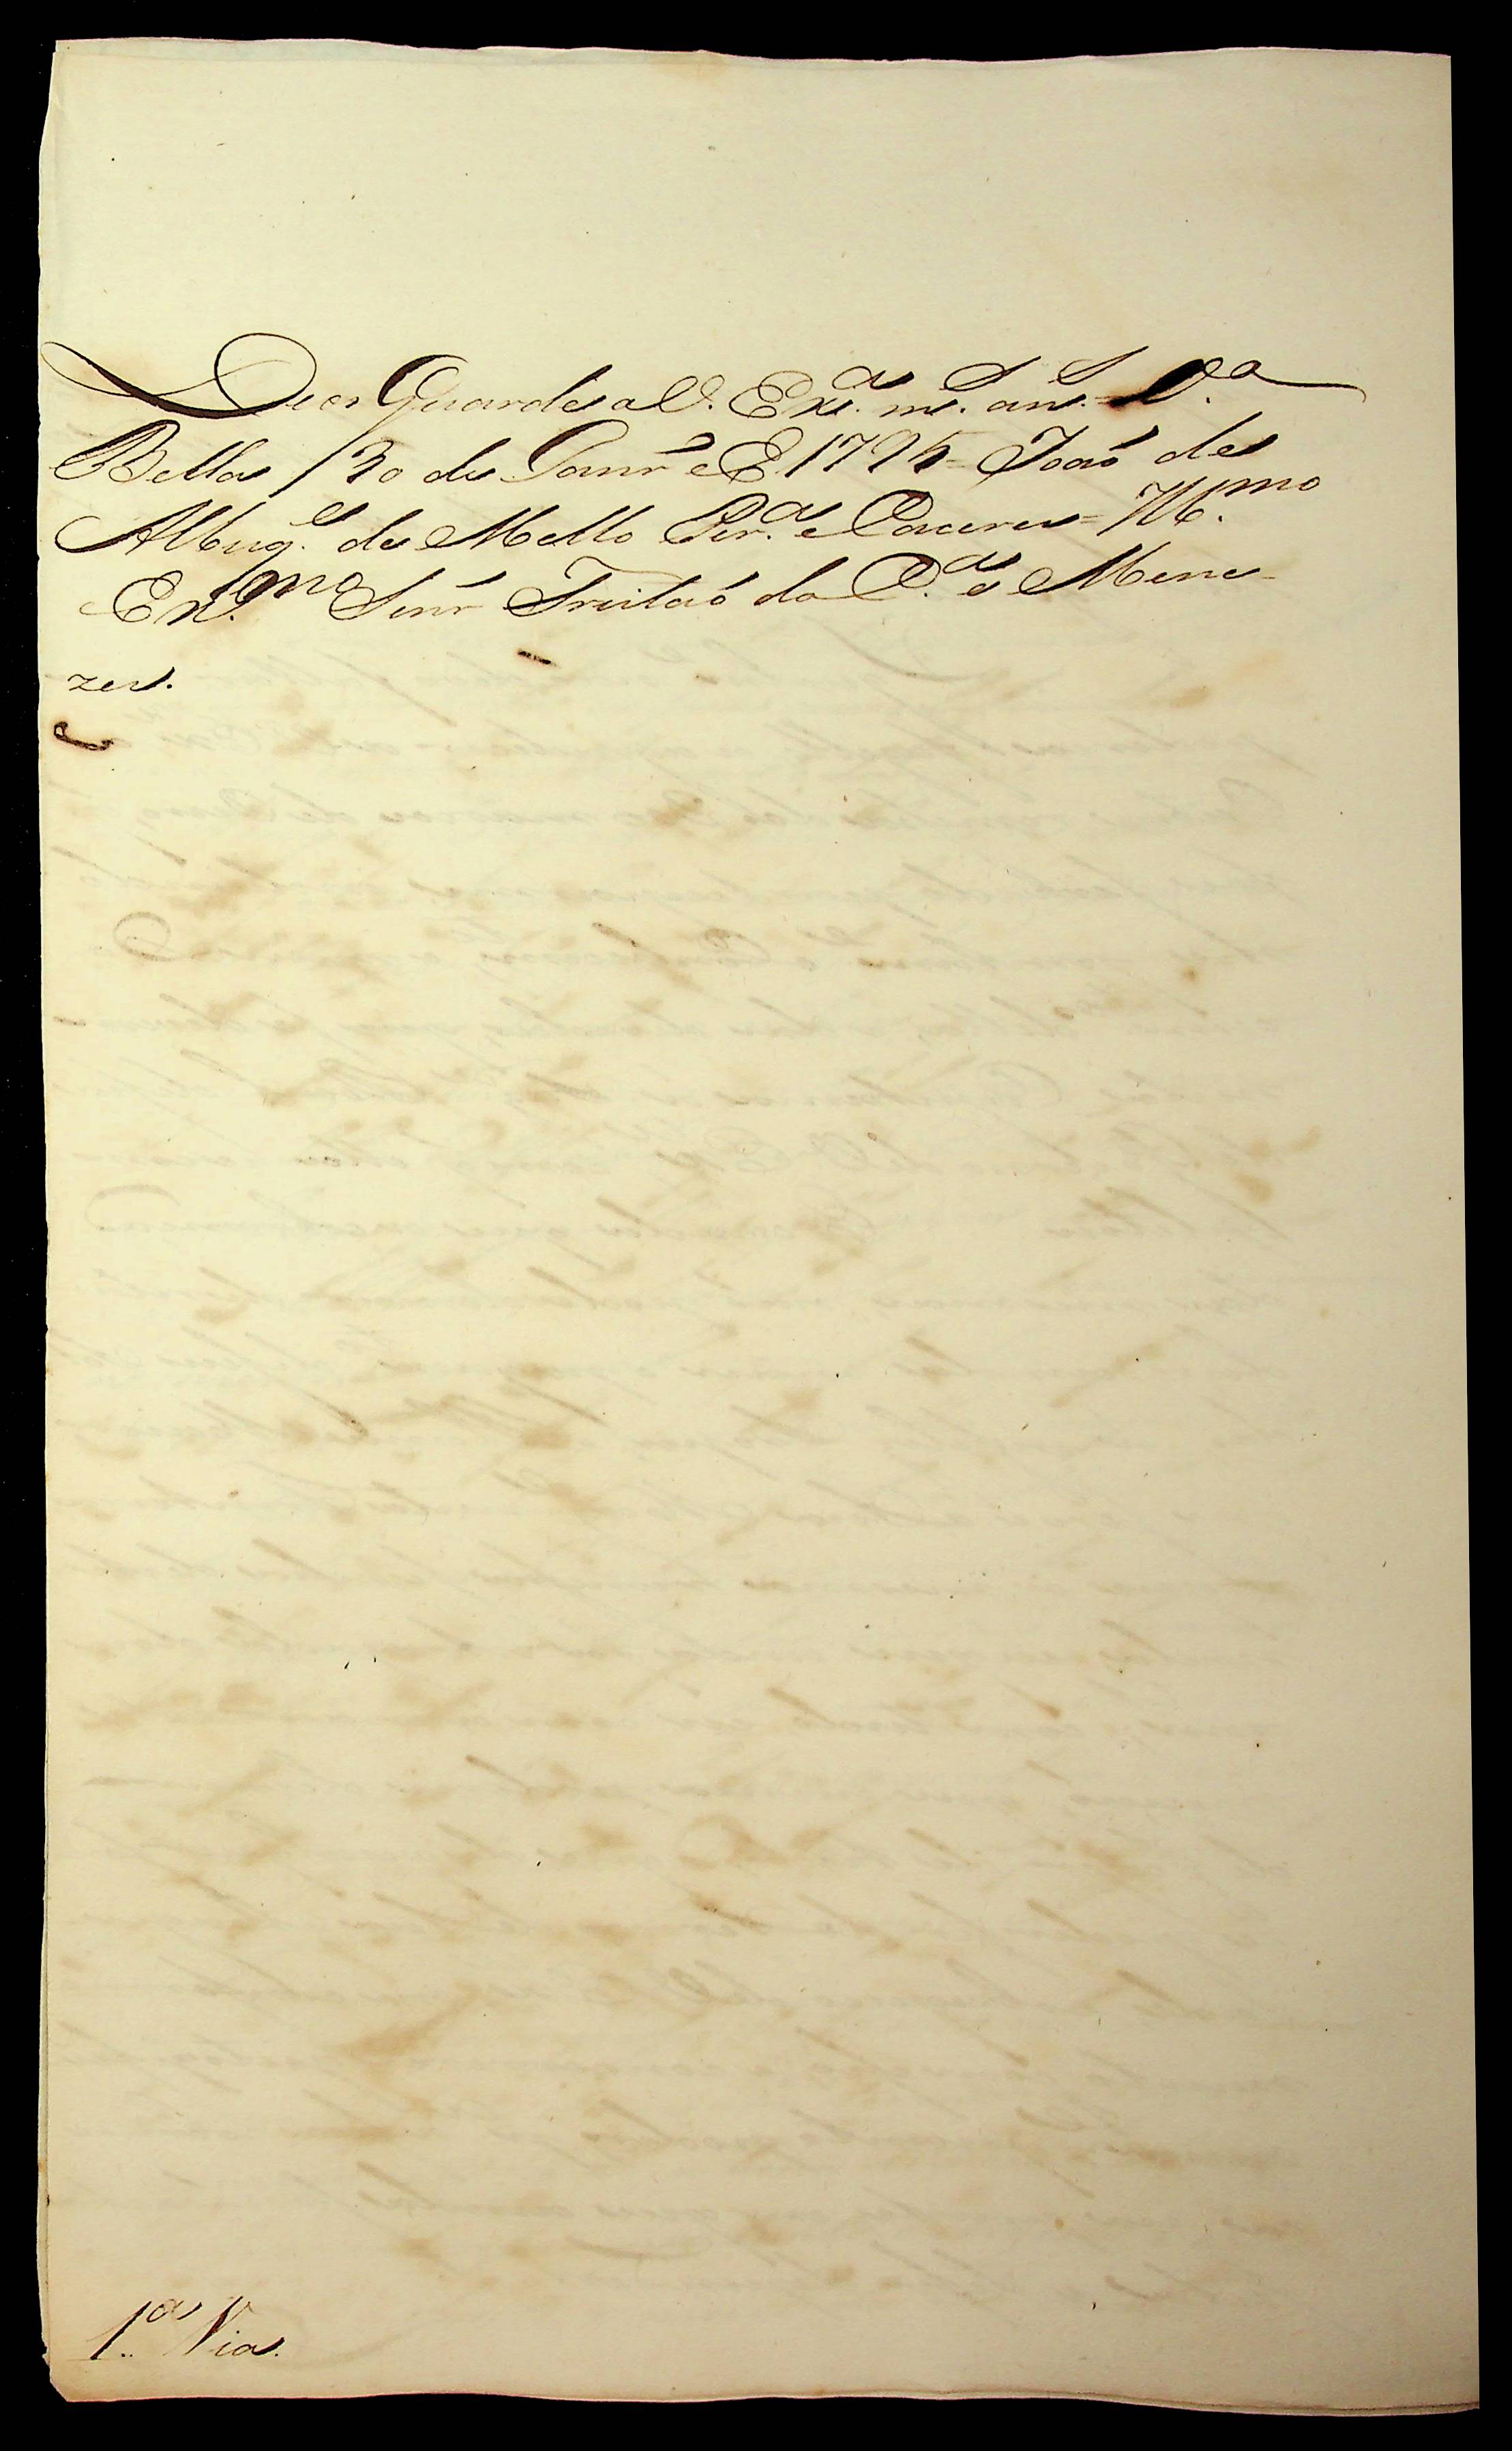 Deos Guarde a V. Ex.ª m.s an.s = V.ª
Bella 30 de Janr.º de 1795 = Joaõ de
Albuq.e de Mello Per.ª e Caceres = Ill.mo
Ex.mo Senr Tristaõ da C.ª e Mene-
zes.
1.ª Via.